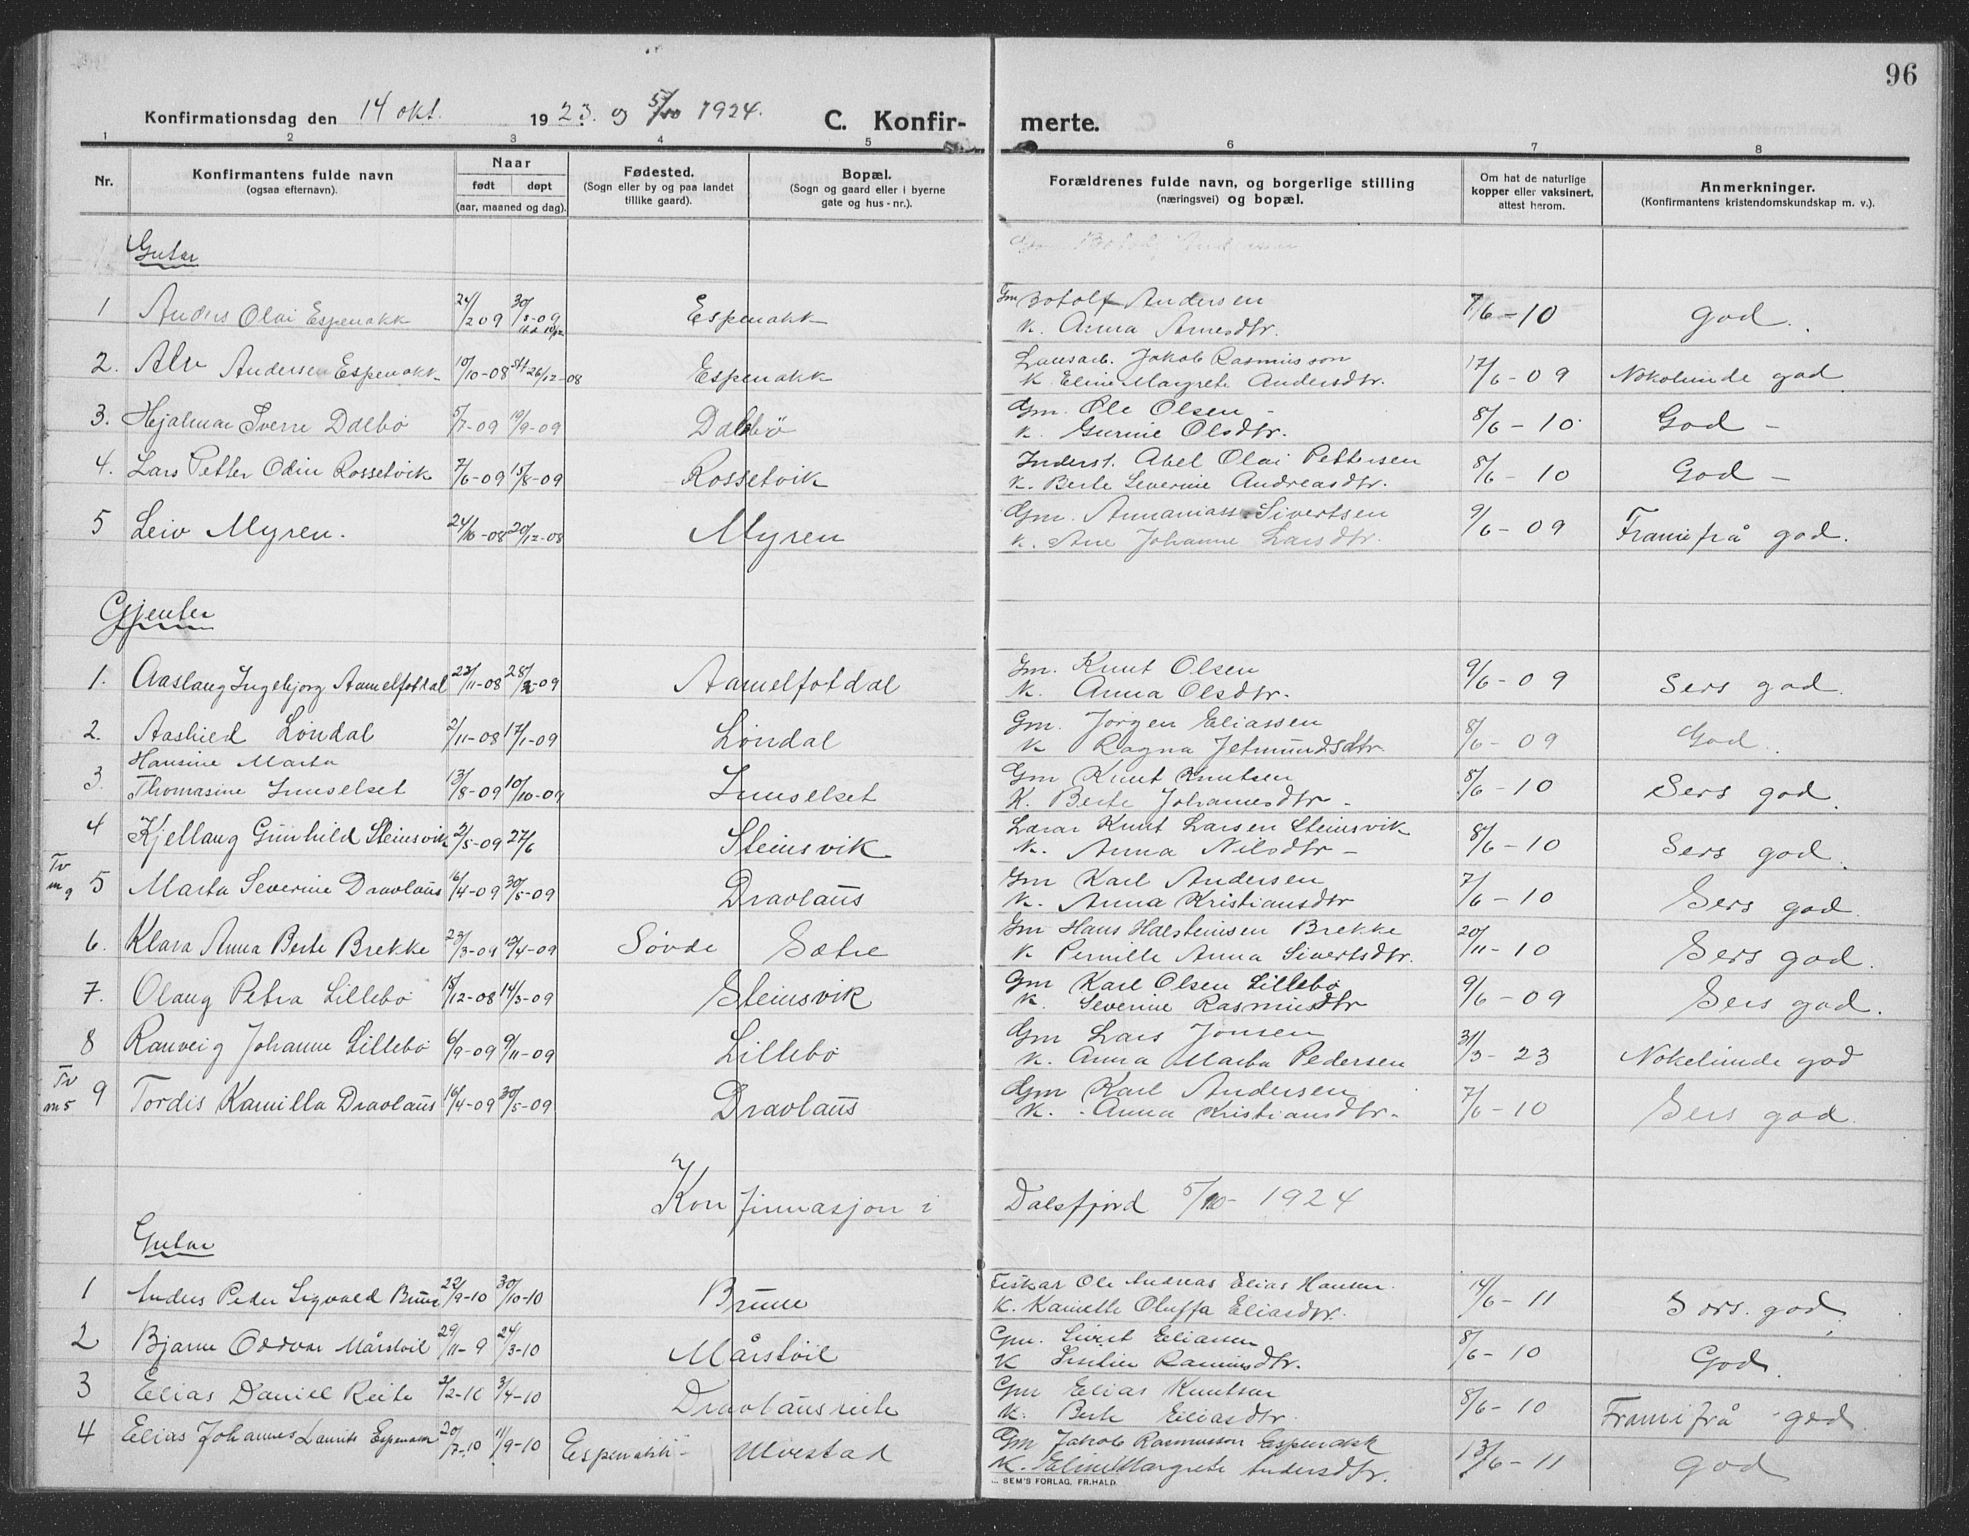 96
Konfirmationsdag den 14 okt. 1923. og 5/10 1924. C. Konfir- merte.
1 2 3 4 5 6 7 8
Nr. Konfirmantens fulde navn (ogsaa efternavn). Naar født døpt (aar, maaned og dag). Fødested. (Sogn eller by og paa landet tillike gaard). Bopæl. (Sogn og gaard eller i byerne gate og hus-nr.). Forældrenes fulde navn, og borgerlige stilling (næringsvei) og bopæl. Om hat de naturlige kopper eller vaksinert, attest herom. Anmerkninger. (Konfirmantens kristendomskundskap m. v.).
Gutar
1 Anders Olai Espenakk 24/2 09 30/3-09 Espenakk Gm Botolf Andersen 7/6-10 god.
K. Anna Arnesdtr.
2. Alv Andersen Espenakk 10/10-08 26/12-08 Espenakk Lausarb. Jakob Rasmusson 17/6-09 Nokolunde god
K Eline Margrete Andersdtr.
3. Hjalmar Sverre Dalbø 5/7-09 19/9-09 Dalbø Gm. Ole Olsen - 8/6-10 God -
K. Gurine Olsdtr.
4. Lars Petter Odin Rossetvik 7/6-09 15/8-09 Rossetvik Inderst. Abel Olai Pettersen 8/6-10 God -
K. Berte Severine Andreasdtr.
5 Leiv Myren. 24/10-08 20/12-08 Myren Gm. Annanias Sivertsen 9/6-09 Framifrå god.
K. Ane Johanne Larsdtr.
Gjenter
1. Aaslaug Ingebjorg Aamelfotdal 22/11-08 28/2-09 Aamelfotdal Gm. Knut Olsen 9/6-09 Sers god.
K. Anna Olsdtr.
2. Aashied Løndal 2/11-08 17/1-09 Løndal Gm. Jørgen Eliassen 8/6-09 God.
K Ragna Jetmundsdtr.
Hansine Marta
3. Thomasine Innselset 13/8-09 10/10-09 Innselset Gm Knut Knutsen 8/6-10 Sers god.
K. Berte Johanesdtr -
4 Kjellaug Gunhild Steinsvik 2/5-09 27/6 Steinsvik Lærar Knut Larsen Steinsvik 8/6-10 Sers god.
K. Anna Nilsdtr -
Tv m 9 5 Marta Severine Dravlaus 16/4-09 30/5-09 Dravlaus Gm Karl Andersen 7/6-10 Sers god.
K. Anna Kristiansdtr
6. Klara Anna Berte Brekke 23/3-09 12/4-09 Søvde Sætre Gm Hans Halsteinsen Brekke 20/11-10 Sers god.
K Pernille Anna Sivertsdtr.
7. Olaug Petra Lillebø 18/12-08 14/3-09 Steinsvik Gm Karl Olsen Lillebø 9/6-09 Sers god.
K. Severine Rasmusdtr
8 Ranveig Johanne Lillebø 6/9-09 9/11-09 Lillebø Gm Lars Jonsen 31/3-23 Nokelunde god
K. Anna Marta Pedersen
Tv m 5 9 Tordis Kamilla Dravlaus 16/4-09 30/5-09 Dravlaus Gm Karl Andersen 7/6-10 Sers god.
K. Anna Kristiansdtr.
Konfirmasjon i Dalsfjord 5/10-1924
Gutar
1 Anders Peder Sigvald Brune 22/9-10 30/10-10 Brune Fiskar Ole Andreas Elias Hansen 14/6-11 Sers. god.
K. Kamille Oluffa Eliasdtr.
2 Bjarne Oddvar Mårstvil 29/11-9 24/3-10 Mårstvil Gm. Sivert Eliassen 8/6-10 God.
K Rasmusdtr.
3 Elias Daniel Reite 2/2-10 3/4-10 Dravlausreite Gm Elias Knutsen 8/6-10 Framifrå god
K. Berte Eliasdtr.
4 Elias Johannes Laurits Espenakk 20/7-10 11/9-10 Espenakk - Ulvestad Gm Jakob Rasmusson Espenakk 13/6-11 God
K. Eline Margrete Andersdtr.
SEM'S FORLAG, FR.HALD.